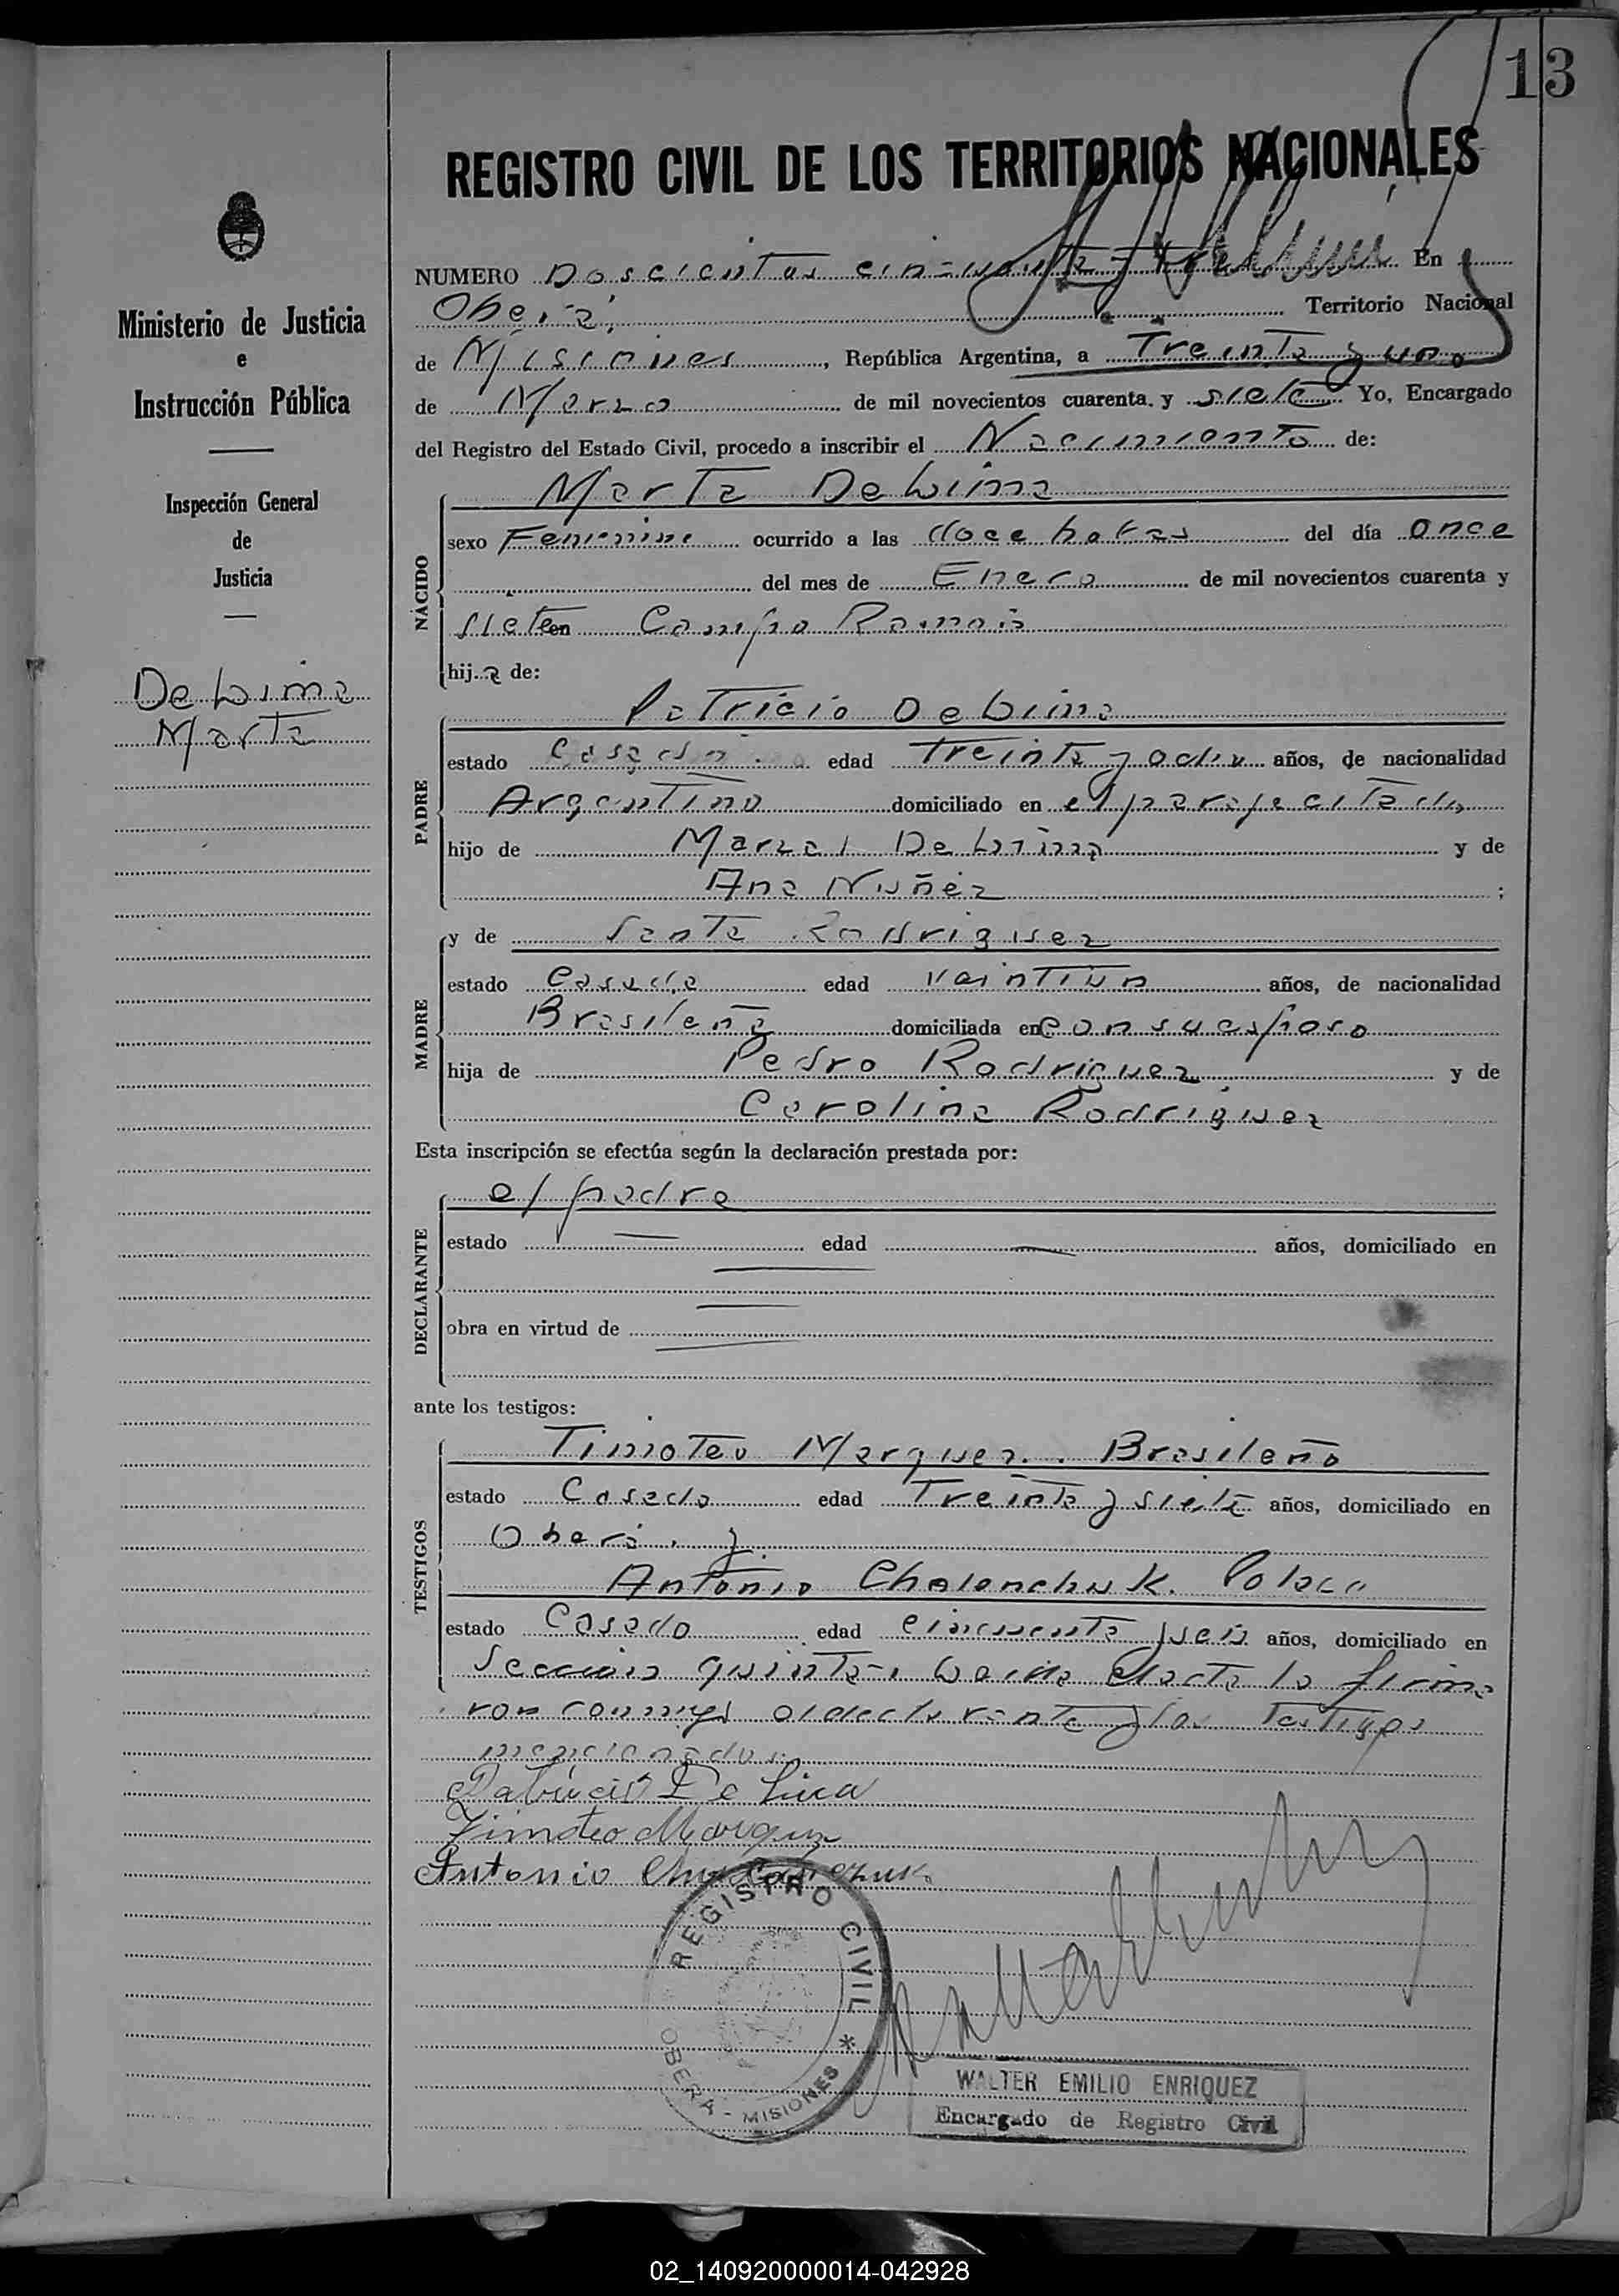 13
REGISTRO CIVIL DE LOS TERRITORIOS NACIONALES
NUMERO Doscientos cincuenta y En
Oberá, Territorio Nacional
de Misiones, República Argentina, a Treinta y uno
de Marzo de mil novecientos cuarenta y siete Yo, Encargado
del Registro del Estado Civil, procedo a inscribir el Nacimiento de:
Ministerio de Justicia
e
Instrucción Pública
Inspección General
de
Justicia
De Lima
Marta
NACIDO
Marta De Lima
sexo Femenino ocurrido a las doce horas del día once
del mes de Enero de mil novecientos cuarenta y
siete en Campo Ramón
hija de:
PADRE
Patricio De Lima
estado Casado edad Treinta y ocho años, de nacionalidad
Argentino domiciliado en el paraje citado
hijo de Marzal De Lima y de
Ana Nuñez ;
MADRE
y de Santa Rodriguez
estado Casada edad Veintiun años, de nacionalidad
Brasileña domiciliada en con su esposo
hija de Pedro Rodriguez y de
Carolina Rodriguez
Esta inscripción se efectúa según la declaración prestada por:
DECLARANTE
el padre
estado — edad — años, domiciliado en
—
obra en virtud de —
ante los testigos:
TESTIGOS
Timoteo Marquez. Brasileño
estado Casado edad Treinta y siete años, domiciliado en
Oberá. y
Antonio Chalanchuk. Polaco
estado Casado edad cincuenta y seis años, domiciliado en
Seccion quinta. Leida el acta la firma
ron conmigo el declarante y los testigos
mencionados.
Patricio De Lima
Timoteo Marquez
Antonio
REGISTRO CIVIL * OBERÁ - MISIONES
WALTER EMILIO ENRIQUEZ
Encargado de Registro Civil
02_140920000014-042928